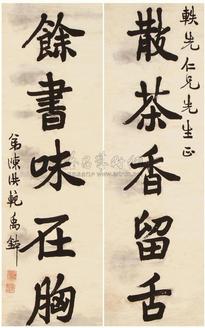 軼先仁兄先生正
散茶香留舌
餘書味在胸
弟陳洪範禹